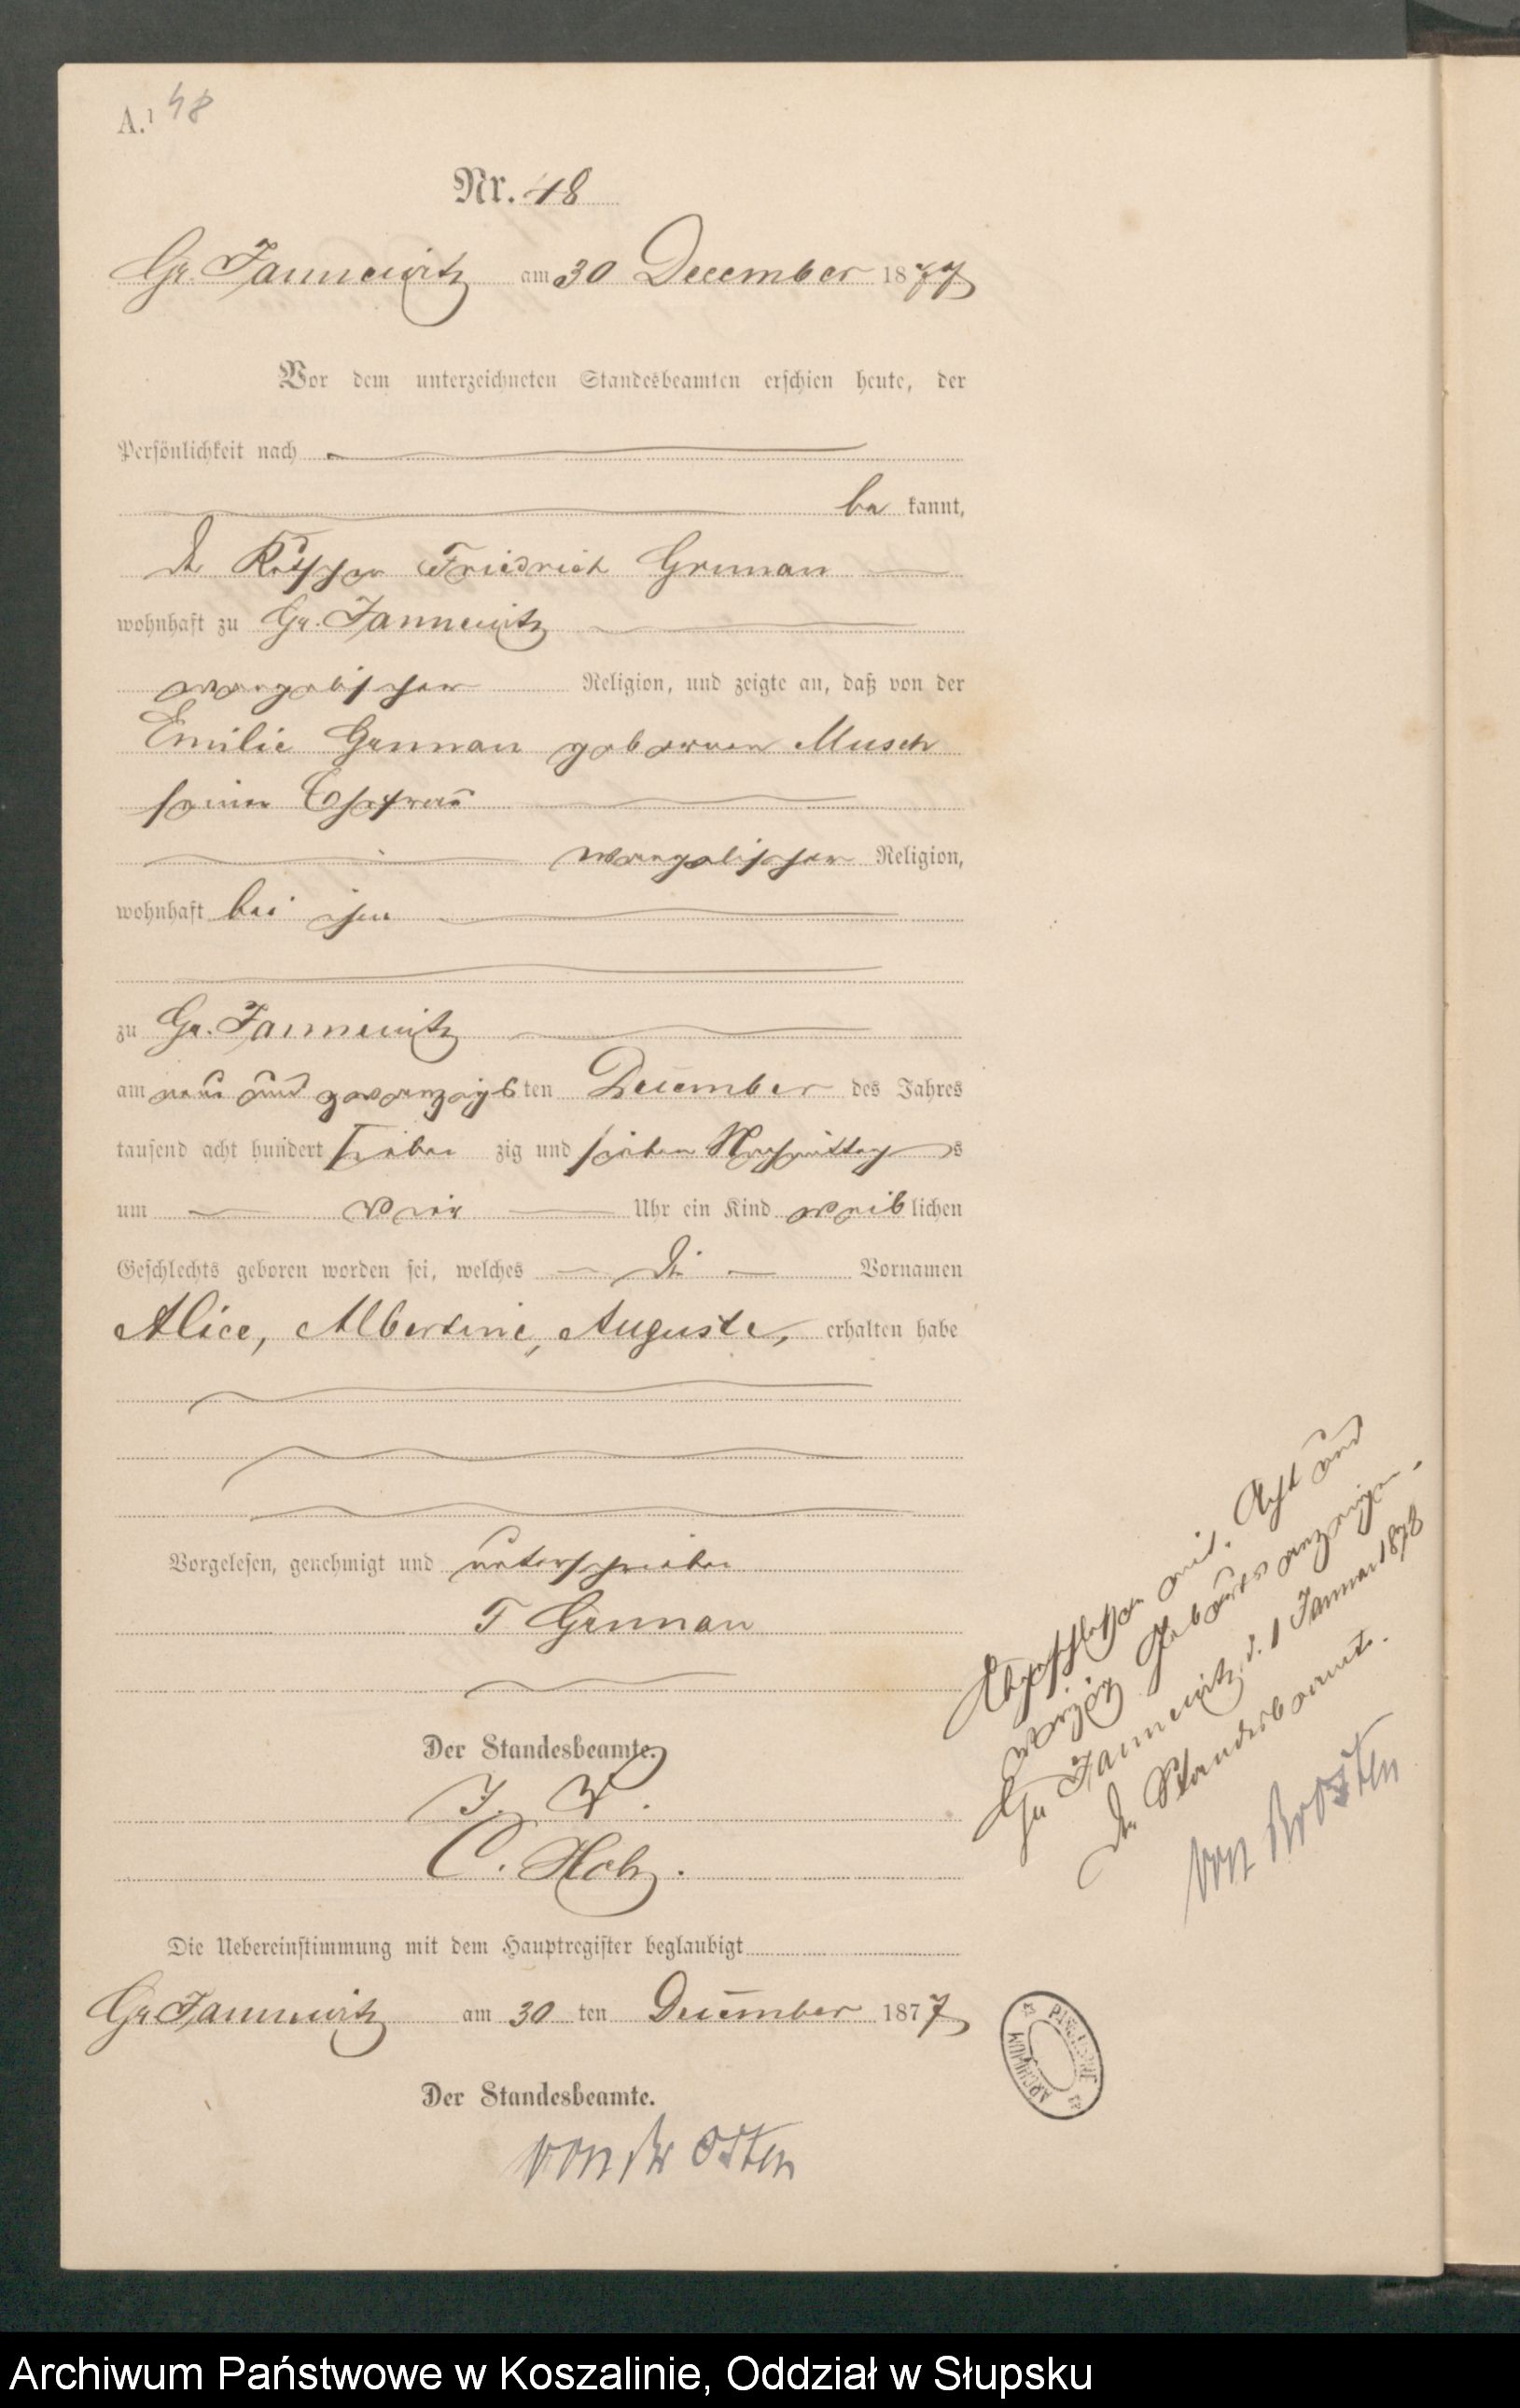 A.¹ 48
Nr. 48
Gr. Jannewitz am 30 December 1877
Vor dem unterzeichneten Standesbeamten erschien heute, der
Persönlichkeit nach
be kannt,
der Kutscher Friedrich Grunau
wohnhaft zu Gr. Jannewitz
evangelischer Religion, und zeigte an, daß von der
Emilie Grunau geborenen Musch
seiner Ehefrau
evangelischer Religion,
wohnhaft bei ihm
zu Gr. Jannewitz
am neun und zwanzigsten December des Jahres
tausend acht hundert sieben zig und sieben Nachmittags
um vier Uhr ein Kind weiblichen
Geschlechts geboren worden sei, welches die Vornamen
Alice, Albertine, Auguste, erhalten habe
Vorgelesen, genehmigt und unterschrieben
F Grunau
Der Standesbeamte.
J. V.
C.
Die Uebereinstimmung mit dem Hauptregister beglaubigt
Gr Jannewitz am 30 ten December 1877
Der Standesbeamte.
von der Osten
Abgeschlossen mit Acht und
vierzig Geburtsanzeigen.
Gr Jannewitz d. 1 Januar 1878
Der Standesbeamte.
von der Osten
ARCHIWUM PAŃSTWOWE
Archiwum Państwowe w Koszalinie, Oddział w Słupsku